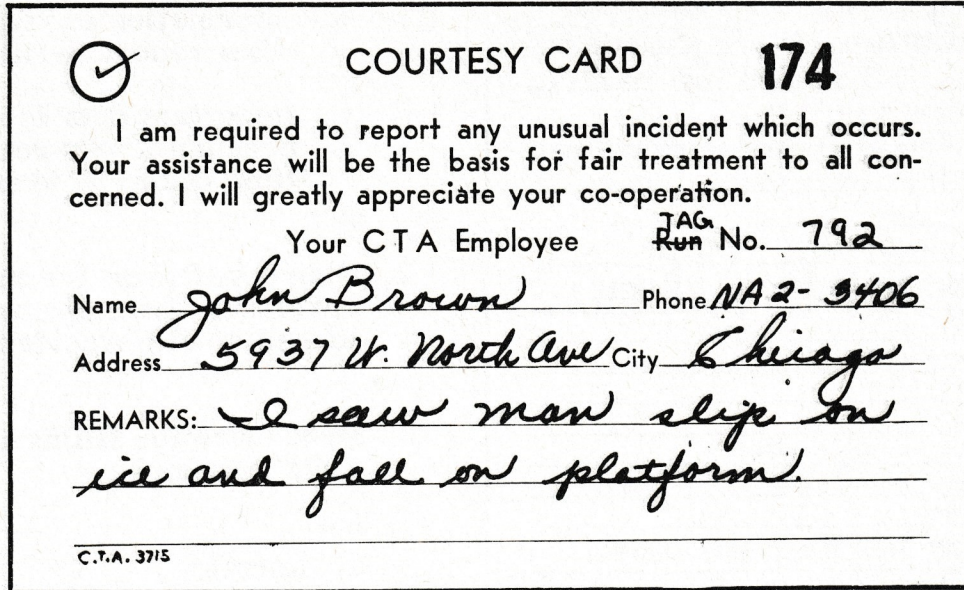 COURTESY CARD 174
I am required to report any unusual incident which occurs.
Your assistance will be the basis for fair treatment to all con-
cerned. I will greatly appreciate your co-operation.
TAG
Your CTA Employee Run No. 792
Name John Brown Phone NA 2-3406
Address 5937 W. North Ave City Chicago
REMARKS: I saw man slip on
ice and fall on platform.
C.T.A. 3715